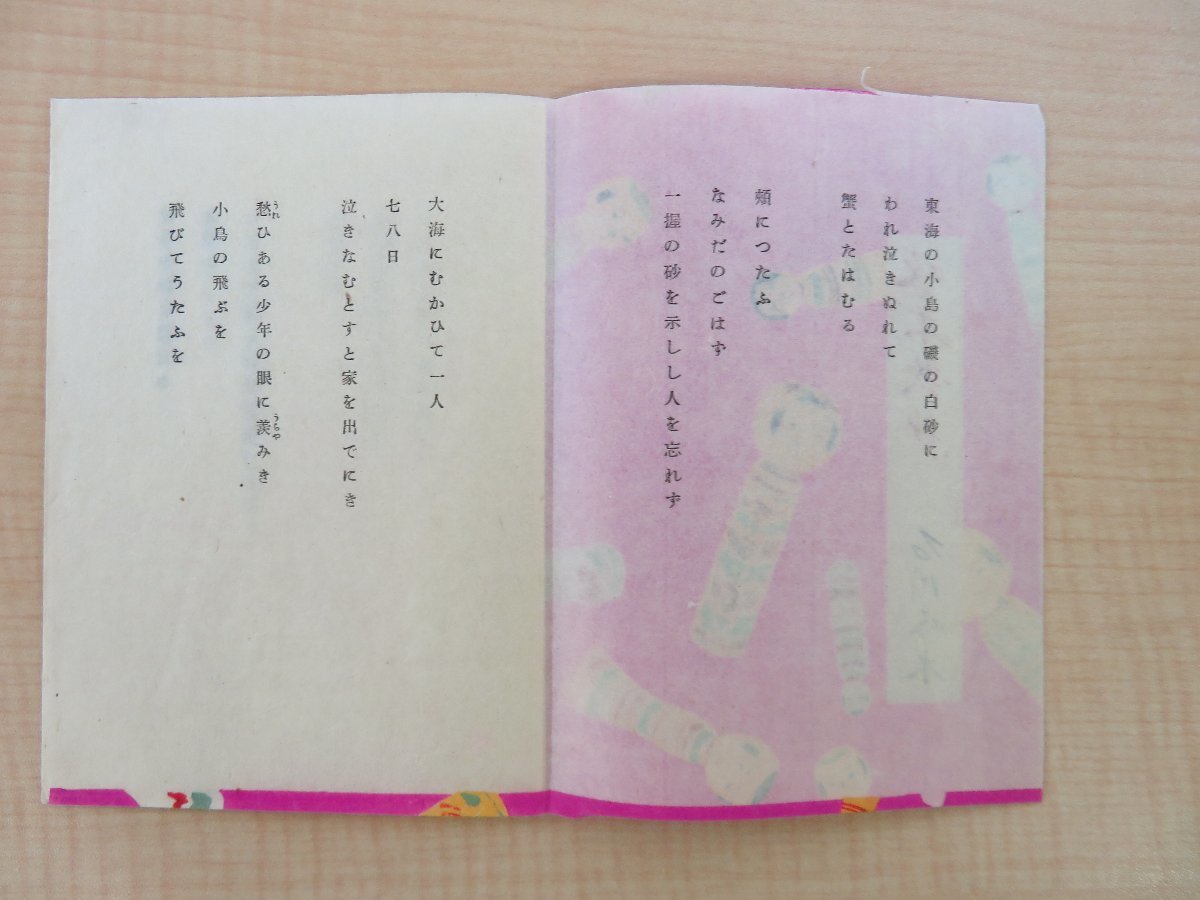 東海の小島の磯の白砂に
われ泣きぬれて
蟹とたはむる
頬につたふ
なみだのごはず
一握の砂を示しし人を忘れず
大海にむかひて一人
七八日
泣きなむとすと家を出でにき
愁ひある少年の眼に羨みき
小鳥の飛ぶを
飛びてうたふを